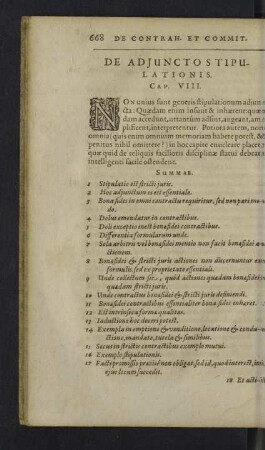 668 DE CONTRAH. ET COMMIT.
DE ADJUNCTO STIPU-
LATIONIS.
CAP. VIII.
NOn unius sunt generis stipulationum adjun-
cta: Quædam enim insunt & inhærent: quæ-
dam accedunt, ut tantùm adsint, augeant, am-
plificent, interpretentur. Potiora autem, non
omnia (quis enim omnium memoriam habere potest, &
penitus nihil omittere?) in hoc capite enucleare placet,
quæ quid de reliquis factioris disciplinæ statui debeat
intelligenti facile ostendent.
SUMMAE.
1 Stipulatio est stricti juris.
2 Hoc adjunctum ei est essentiale.
3 Bona fides in omni contractu requiritur, sed non pari mo-
do.
4 Dolus emendatur in contractibus.
5 Doli exceptio inest bonæ fidei contractibus.
6 Differentia formularum unde.
7 Sola arbitri vel bonæ fidei mentio non facit bonæ fidei a-
ctionem.
8 Bonæ fidei & stricti juris actiones non discernuntur ex
formulis, sed ex proprietate essentiali.
9 Unde collectum sit, quòd actiones quædam bonæ fidei
quædam stricti juris.
10 Unde contractus bonæ fidei & stricti juris definiendi.
11 Bonæ fidei contractibus essentialiter bona fides inhæret.
12 Est intrinseca formæ qualitas.
13 Inductione hoc doceri potest.
14 Exempla in emptione & venditione, locatione & condu-
ctione, mandato, tutela & similibus.
15 Secus in strictis contractibus exemplo mutui.
16 Exemplo stipulationis.
17 Facti promissio præcisè non obligat, sed id, quod interest, in
ejus locum succedit.
18 Et actio